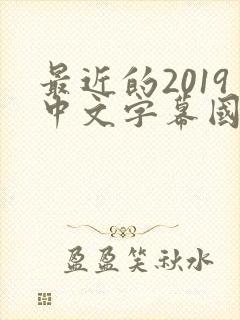 最近的2019
中文字幕國
盈盈笑秋水